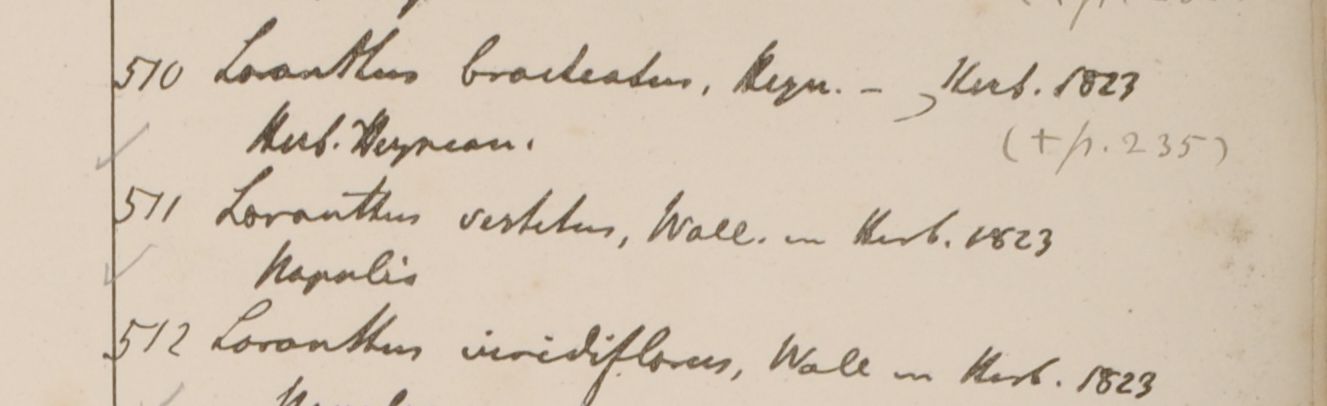 510 Loranthus bracteatus, Heyn. - , Herb. 1823
Herb. Heynean. (+ p. 235)
511 Loranthus vestitus, Wall. in Herb. 1823
Napalis
512 Loranthus viridiflorus, Wall in Herb. 1823